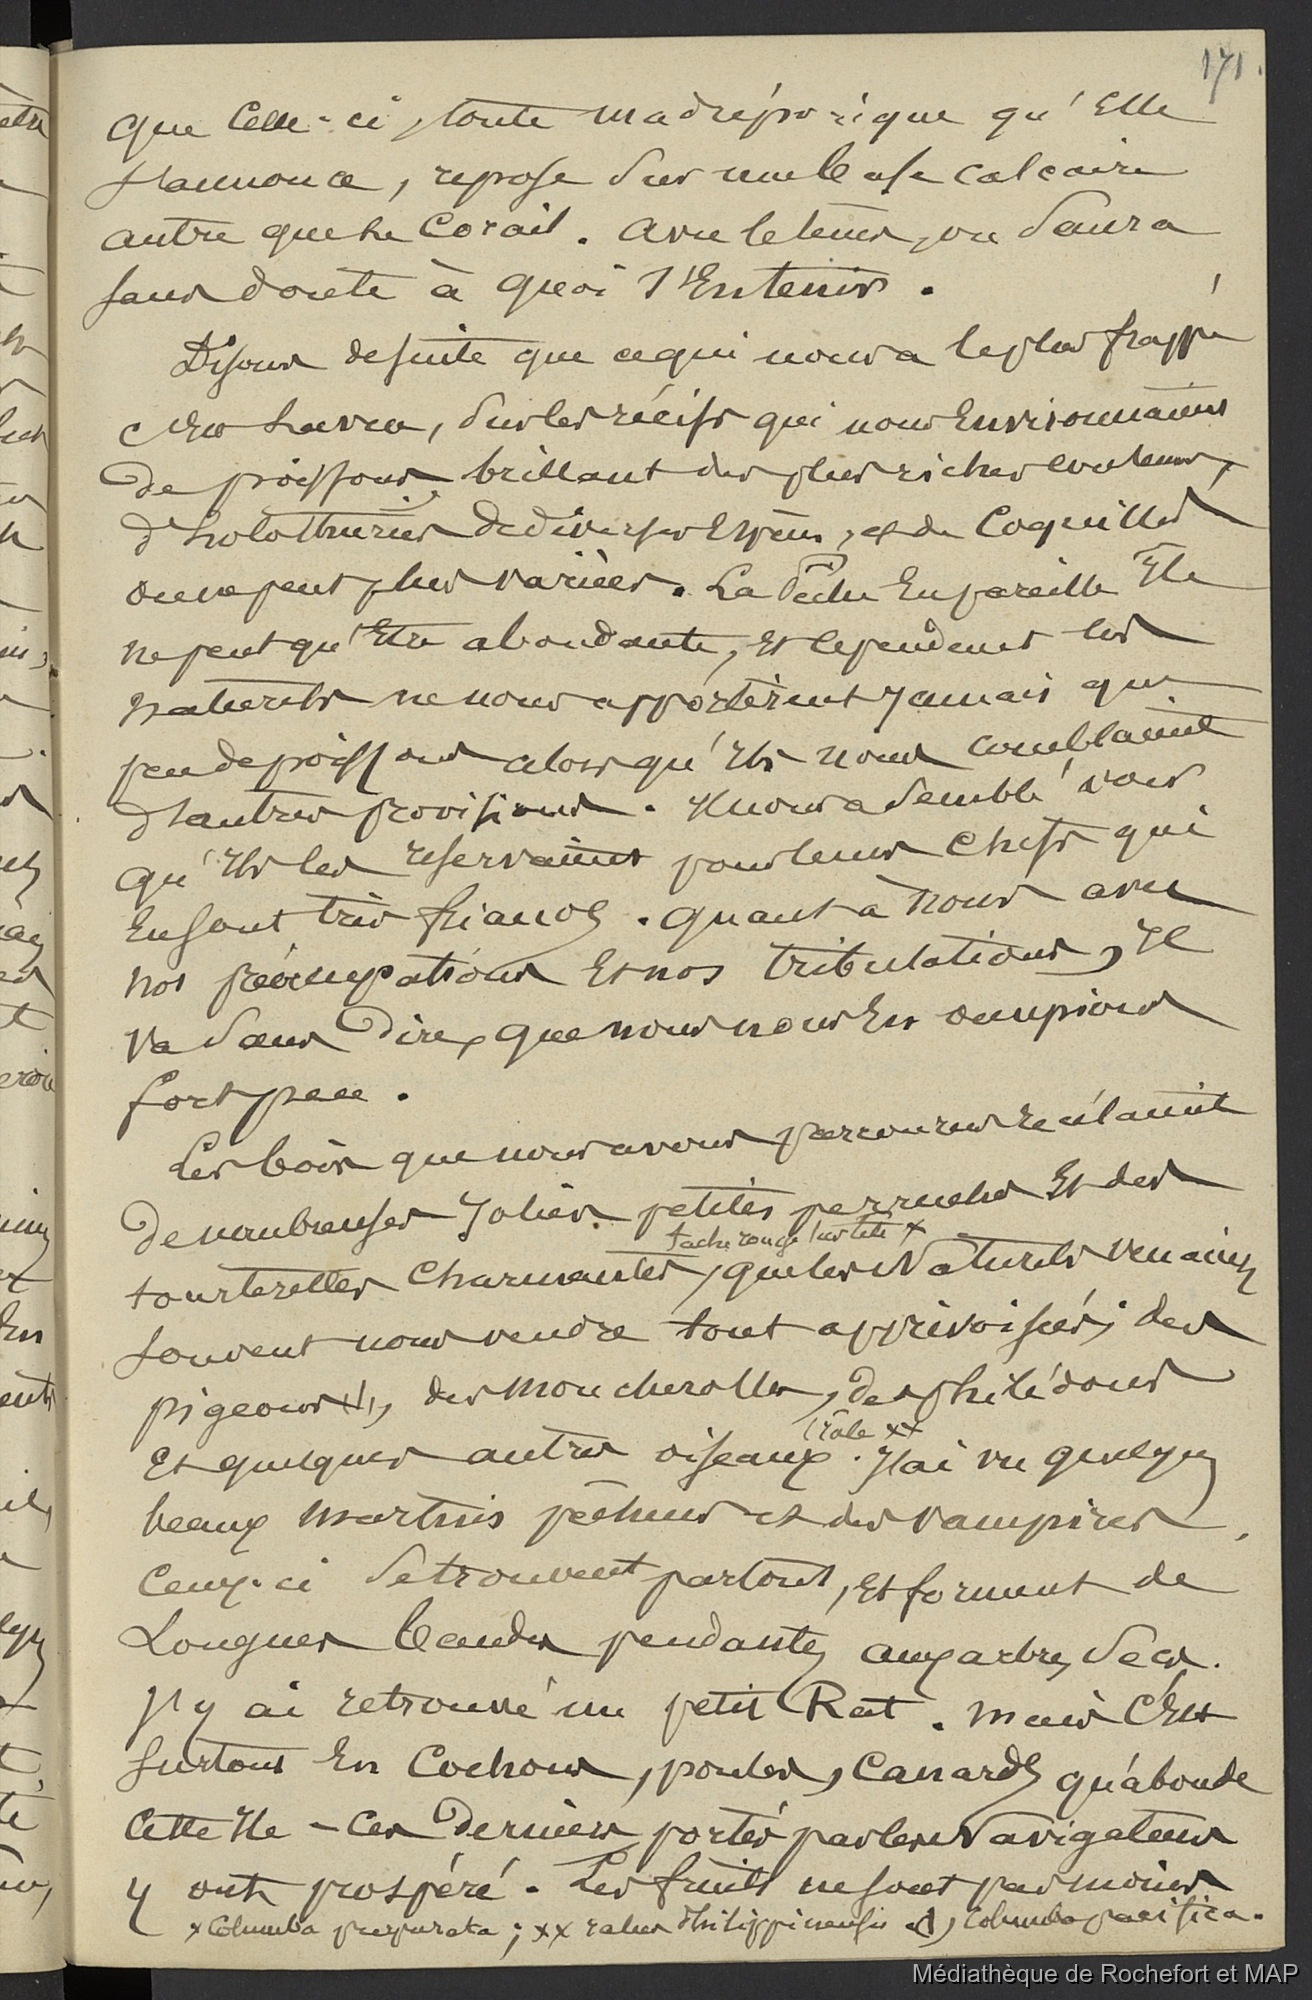 171.
que celle-ci, toute madréporique qu'Elle
s'annonce, repose sur une base calcaire
autre que le Corail. Avec le tems, on saura
sans doute à quoi s'En tenir.
Disons de suite que ce qui nous a le plus frappé
c'Est la vue, sur les récifs qui nous Environnaient
de poissons brillant des plus riches couleurs,
d'holothuries de diverses Espèces, et de Coquilles
on ne peut plus variées. La Pêche En pareille Ile
ne peut qu'Etre abondante, Et cependant les
naturels ne nous apportèrent jamais que
peu de poissons alors qu'Ils nous comblaient
d'autres provisions. Il nous a semblé voir
qu'Ils les réservaient pour leurs Chefs qui
En sont très friands. Quant à nous avec
nos préoccupations Et nos tribulations, Il
va sans Dire, que nous nous En occupions
fort peu.
Les bois que nous avons parcourus recélaient
de nombreuses Jolies petites perruches Et des
tache rouge sur tête x
tourterelles charmantes, que les Naturels venaient
souvent nous vendre tout apprivoisées; des
pigeons (1), des Moucherolles, des philédons
(râle xx
Et quelques autres oiseaux. J'ai vu quelques
beaux martins pêcheurs et des vampires.
Ceux-ci se trouvent partout, Et forment de
Longues bandes pendantes aux arbres secs.
J'y ai retrouvé un petit Rat. Mais C'Est
surtout En Cochons, poules, Canards qu'abonde
cette Ile - Ces Derniers portés par les Navigateurs
y ont prospéré. Les fruits ne sont pas moins
x Columba purpurata; xx ralus Philippinensis (1) Columba pacifica.
Médiathèque de Rochefort et MAP